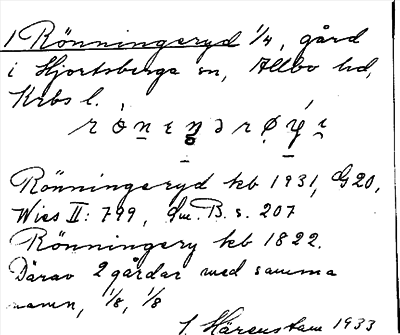 1 Rönningeryd 1/4, gård
i Hjortsberga sn, Allbo hd,
Krbs l.
Rönningeryd kb 1931, G 20,
Wies II: 799, Lm. B. s. 207
Rönningery kb 1822.
Därav 2 gårdar med samma
namn, 1/8, 1/8
Hårenstam 1933